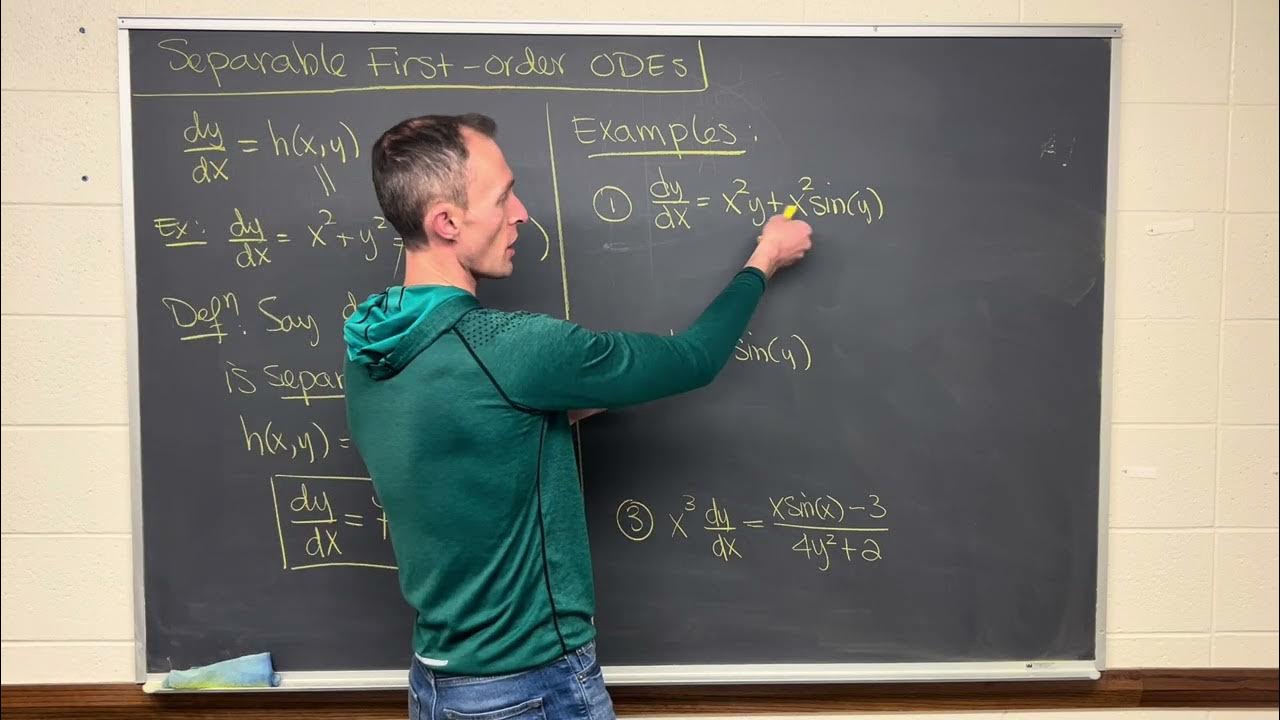 Separable First-order ODEs
dy/dx = h(x,y)
||
Ex: dy/dx = x²+y² = )
Defⁿ: Say d
is separ
h(x,y) =
dy/dx =
Examples:
① dy/dx = x²y+x²sin(y)
sin(y)
③ x³ dy/dx = (xsin(x)-3)/(4y²+2)